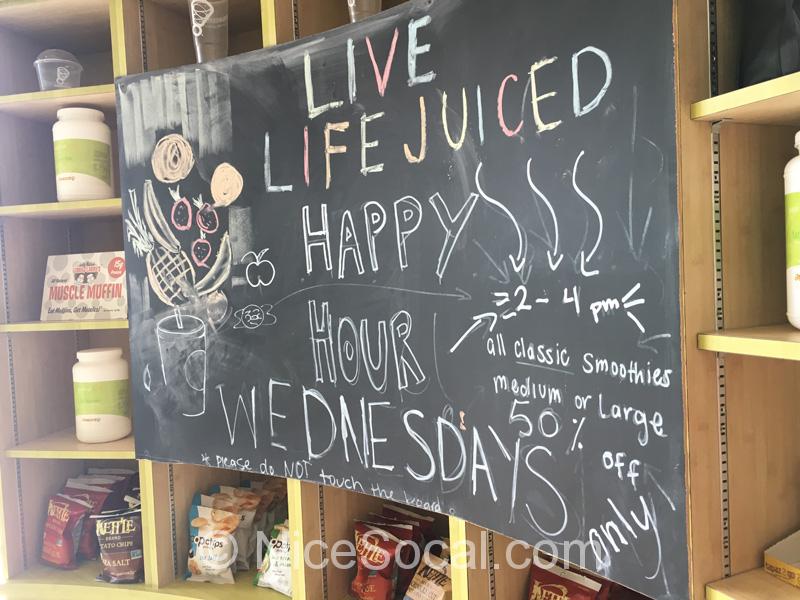 LIVE
LIFE JUICED
HAPPY
HOUR
WEDNESDAYS
2-4 pm
all classic smoothies
medium or Large
50%
off
only
* please do NOT touch the board.
MUSCLE MUFFIN
KETTLE
BRAND
POTATO CHIPS
SEA SALT
popchips
KETTLE
© NiceSocal.com